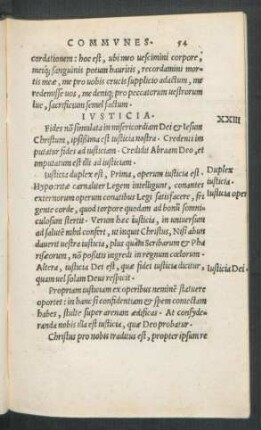 COMMVNES. 54
cordationem: hoc est, ubi meo uescimini corpore,
meiq́; sanguinis potum hauritis, recordamini mor
tis meæ, me pro uobis crucis supplicio adactum, me
redemisse uos, me deniq; pro peccatorum uestrorum
lue, sacrificium semel factum.
IVSTICIA. XXIII
Fides nō simulata in misericordiam Dei & Iesum
Christum, ipsissima est iusticia nostra. Credenti im
putatur fides ad iusticiam. Credidit Abraam Deo, et
imputatum est illi ad iusticiam.
Iusticia duplex est, Prima, operum iusticia est. Duplex
Hypocritæ carnaliter Legem intelligunt, conantes iusticia.
externorum operum conatibus Legi satisfacere, fri Iusticia oper
gente corde, quod torpore quodam ad bonū somni
culosum stertit. Verum hæc iusticia, in uniuersum
ad salutē nihil confert, ut inquit Christus, Nisi abun
dauerit uestra iusticia, plus quàm Scribarum & Pha
risæorum, nō potestis ingredi in regnum cœlorum.
Altera, iusticia Dei est, quæ fides iusticia dicitur, Iusticia Dei.
quam uel solam Deus respicit.
Propriam iusticiam ex operibus neminē statuere
oportet: in hanc si confidentiam & spem coniectam
habes, stulte super arenam ædificas. At consyde-
randa nobis illa est iusticia, quæ Deo probatur.
Christus pro nobis traditus est, propter ipsum re